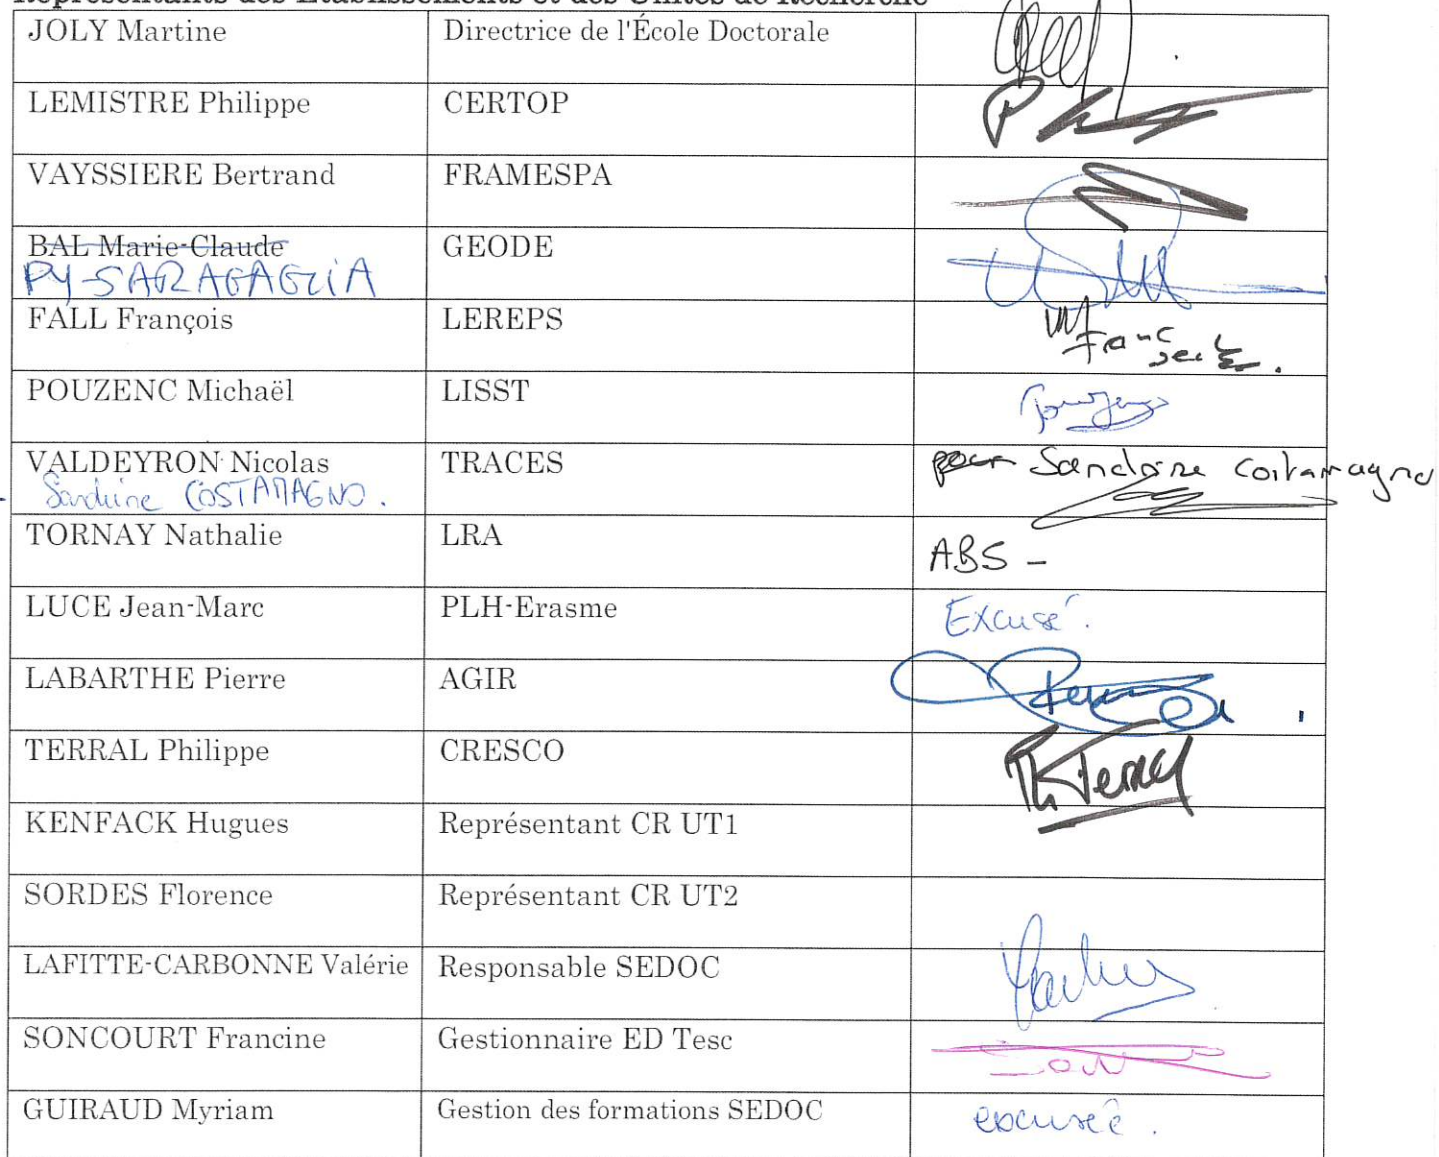 Représentants des Établissements et des Unités de Recherche
JOLY Martine Directrice de l'École Doctorale
LEMISTRE Philippe CERTOP
VAYSSIERE Bertrand FRAMESPA
BAL Marie-Claude GEODE
PY-SARAGAGLIA
FALL François LEREPS
POUZENC Michaël LISST
VALDEYRON Nicolas TRACES pour Sandrine Costamagno
Sandrine COSTAMAGNO.
TORNAY Nathalie LRA ABS -
LUCE Jean-Marc PLH-Erasme Excusé.
LABARTHE Pierre AGIR
TERRAL Philippe CRESCO Ph Terral
KENFACK Hugues Représentant CR UT1
SORDES Florence Représentant CR UT2
LAFITTE-CARBONNE Valérie Responsable SEDOC
SONCOURT Francine Gestionnaire ED Tesc
GUIRAUD Myriam Gestion des formations SEDOC excusée.